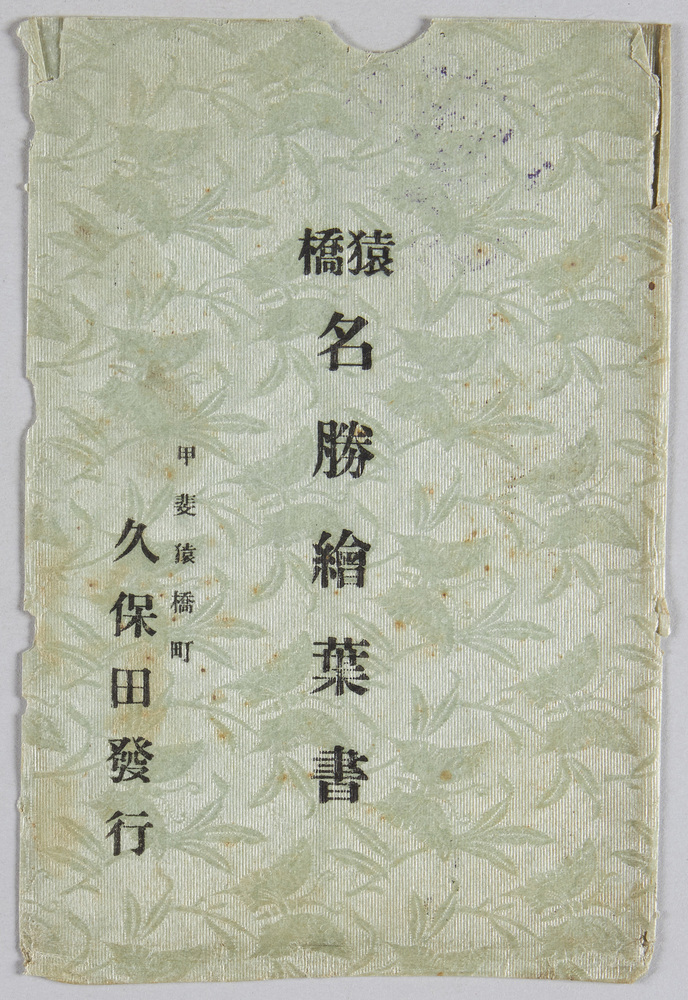 猿橋
名勝繪葉書
甲斐猿橋町
久保田發行